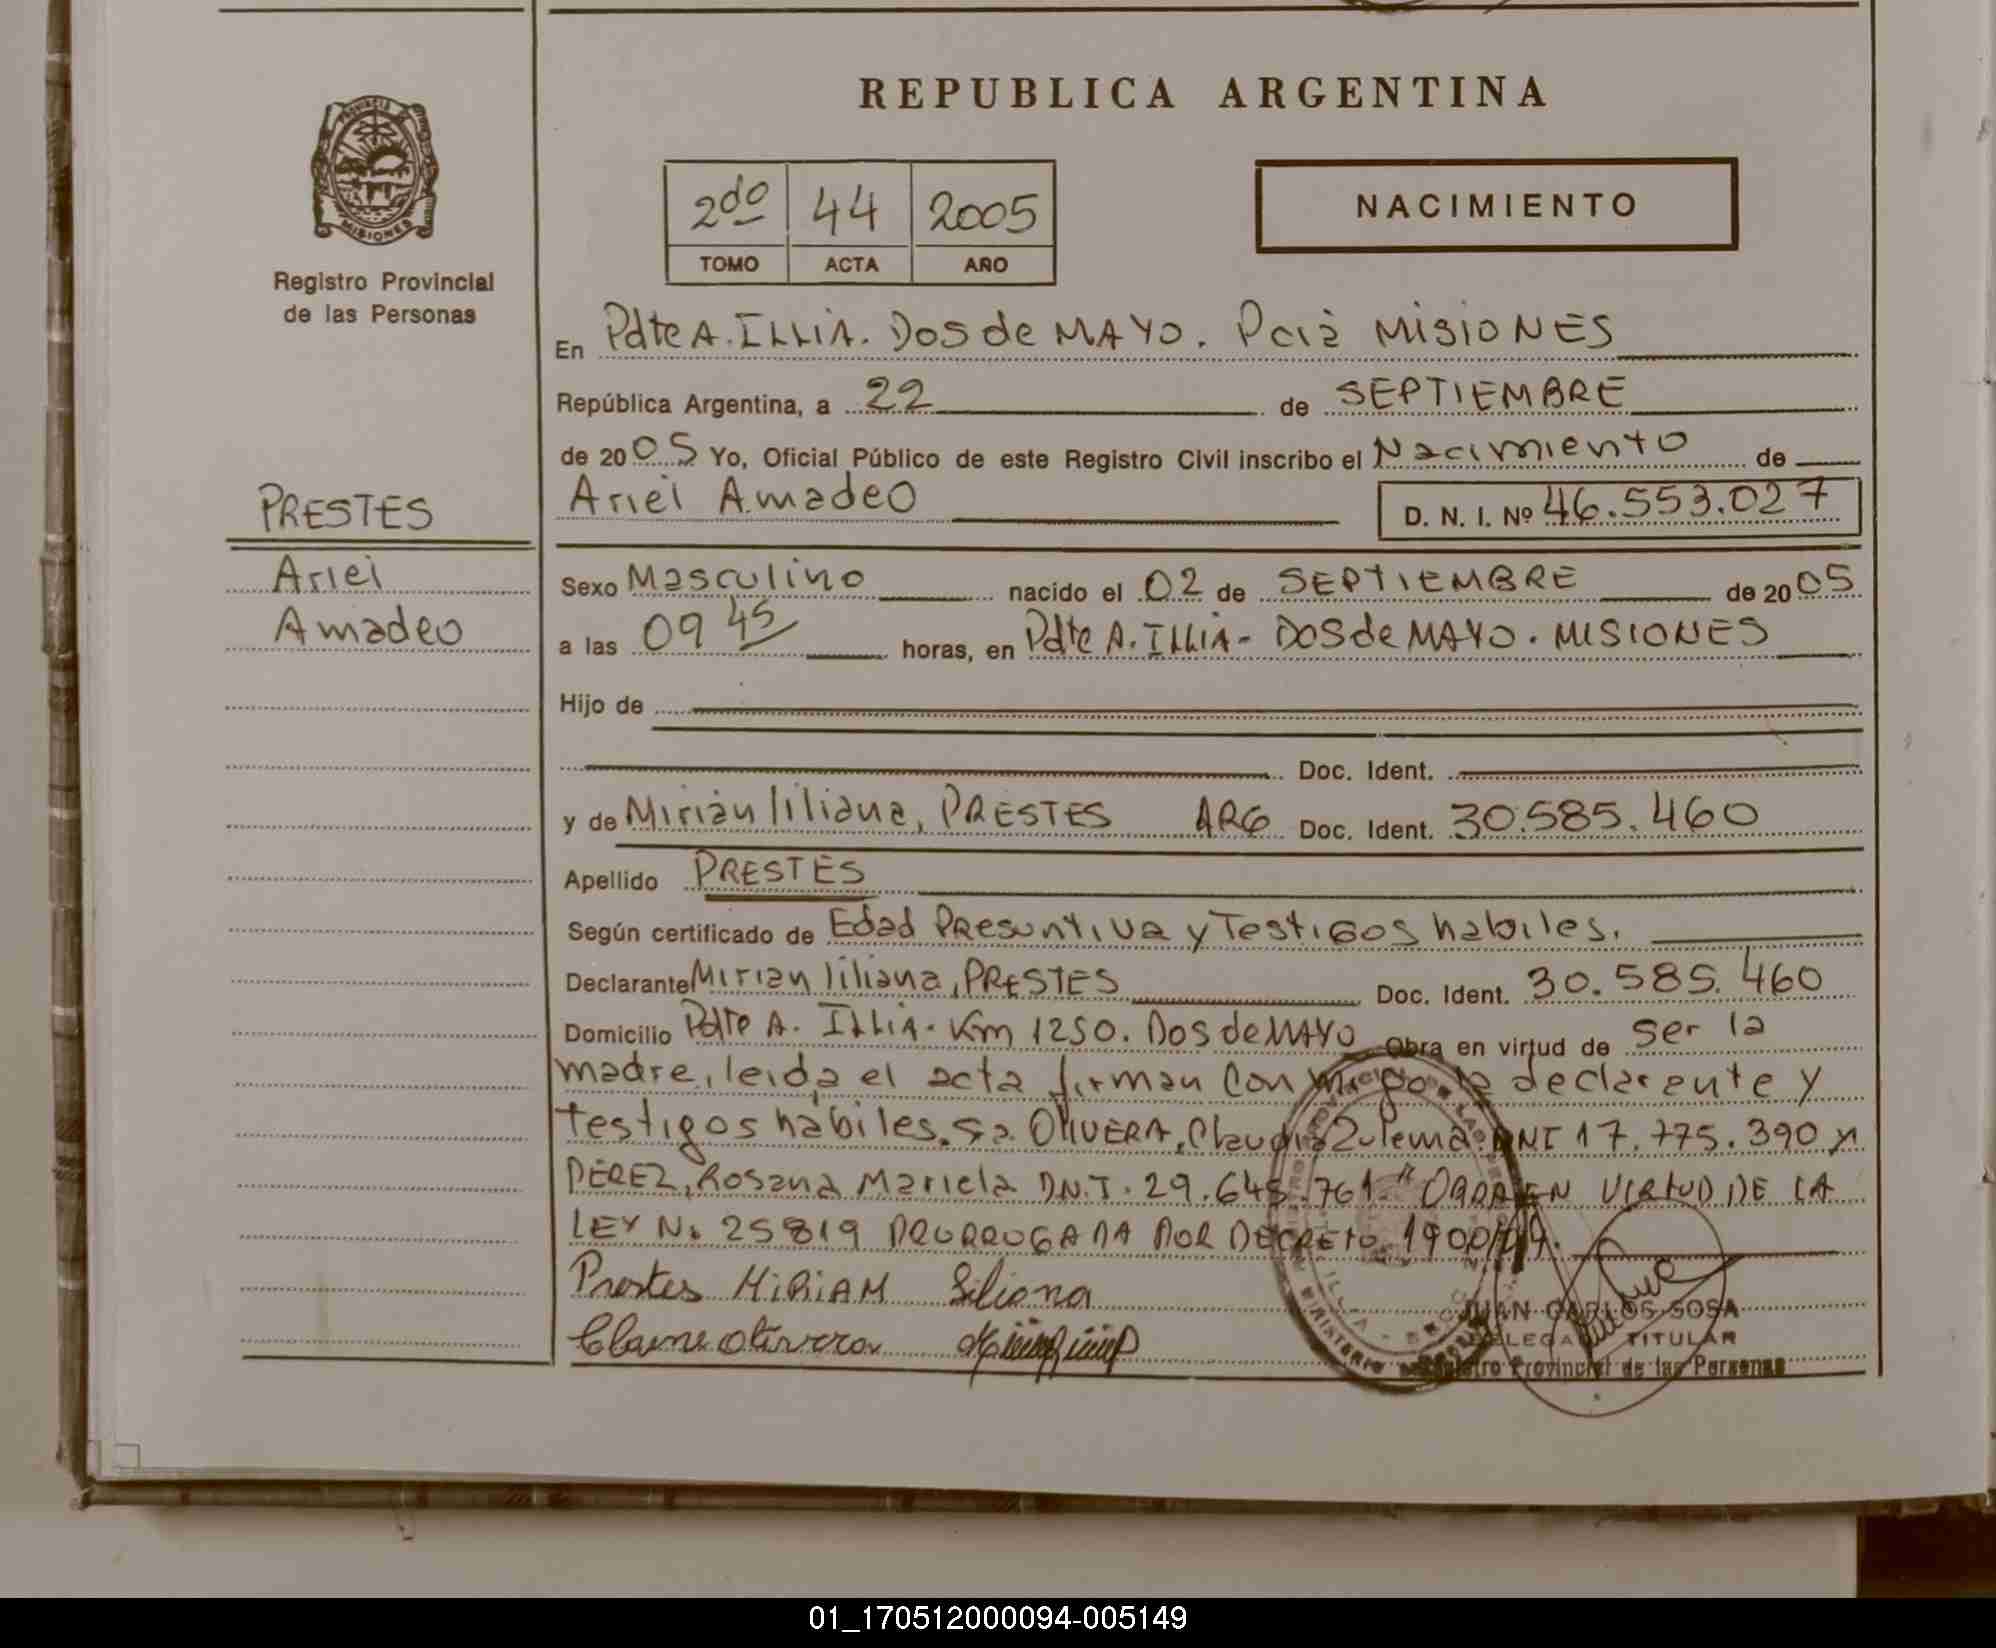 REPUBLICA ARGENTINA
PROVINCIA
MISIONES
Registro Provincial
de las Personas
2do 44 2005
TOMO ACTA AÑO
NACIMIENTO
En Pdte A. ILLIA. Dos de MAYO. Pcia MISIONES
República Argentina, a 22 de SEPTIEMBRE
de 2005 Yo, Oficial Público de este Registro Civil inscribo el Nacimiento de
Ariel Amadeo D. N. I. Nº 46.553.027
PRESTES
Ariel
Amadeo
Sexo Masculino nacido el 02 de SEPTIEMBRE de 2005
a las 09 45 horas, en Pdte A. ILLIA - DOS de MAYO. MISIONES
Hijo de
Doc. Ident.
y de Mirian liliana, PRESTES ARG Doc. Ident. 30.585.460
Apellido PRESTES
Según certificado de Edad Presuntiva y Testigos habiles.
Declarante Mirian liliana, PRESTES Doc. Ident. 30.585.460
Domicilio Pdte A. ILLIA. Km 1250. Dos de MAYO Obra en virtud de ser la
madre, leida el acta firman Con migo la declarante y
testigos habiles. Sa. OLIVERA, Claudia Zulema DNI 17.775.390 y
PEREZ, Rosana Mariela D.N.I. 29.645.761." OBRA EN VIRTUD DE LA
LEY No 25819 PRORROGADA POR DECRETO
Prestes MIRIAM Liliana
JUAN CARLOS SOSA
DELEGADO TITULAR
Registro Provincial de las Personas
01_170512000094-005149